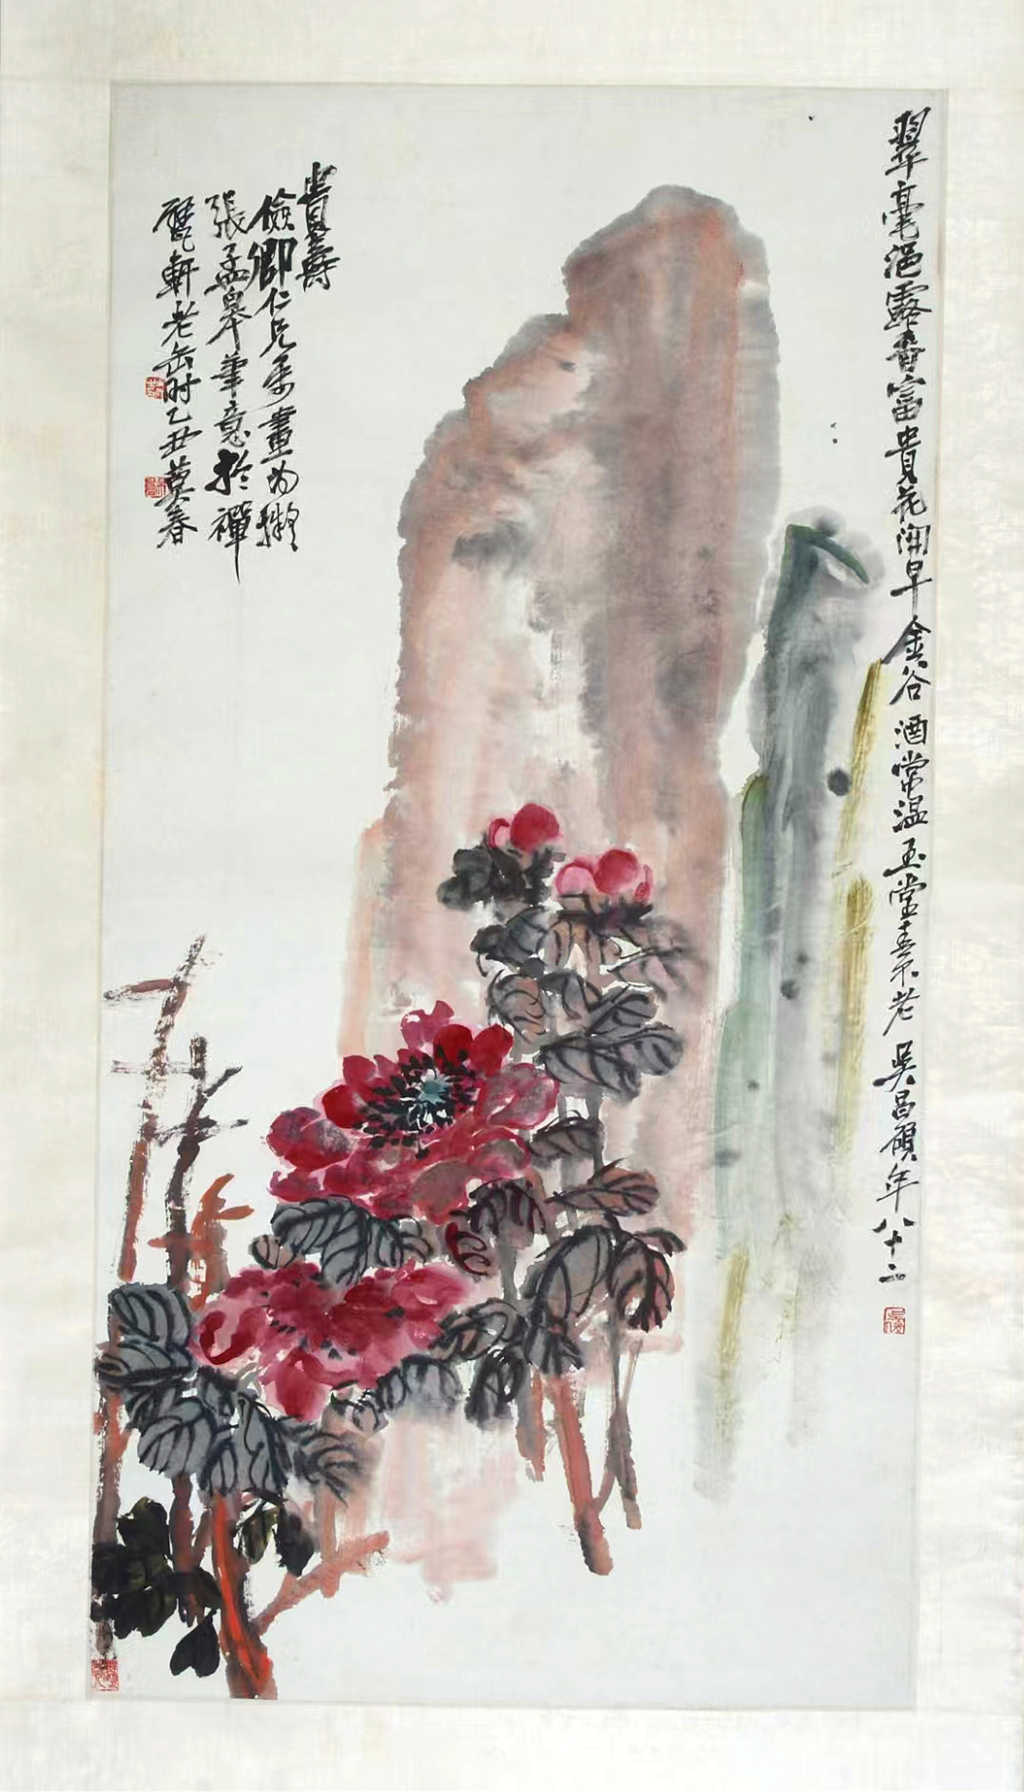 翠毫浥露香富貴花開早金谷酒常温玉堂春不老 吳昌碩年八十二
貴壽
儉卿仁兄屬畫為擬
張孟皋筆意於禪
甓軒老缶時乙丑莫春